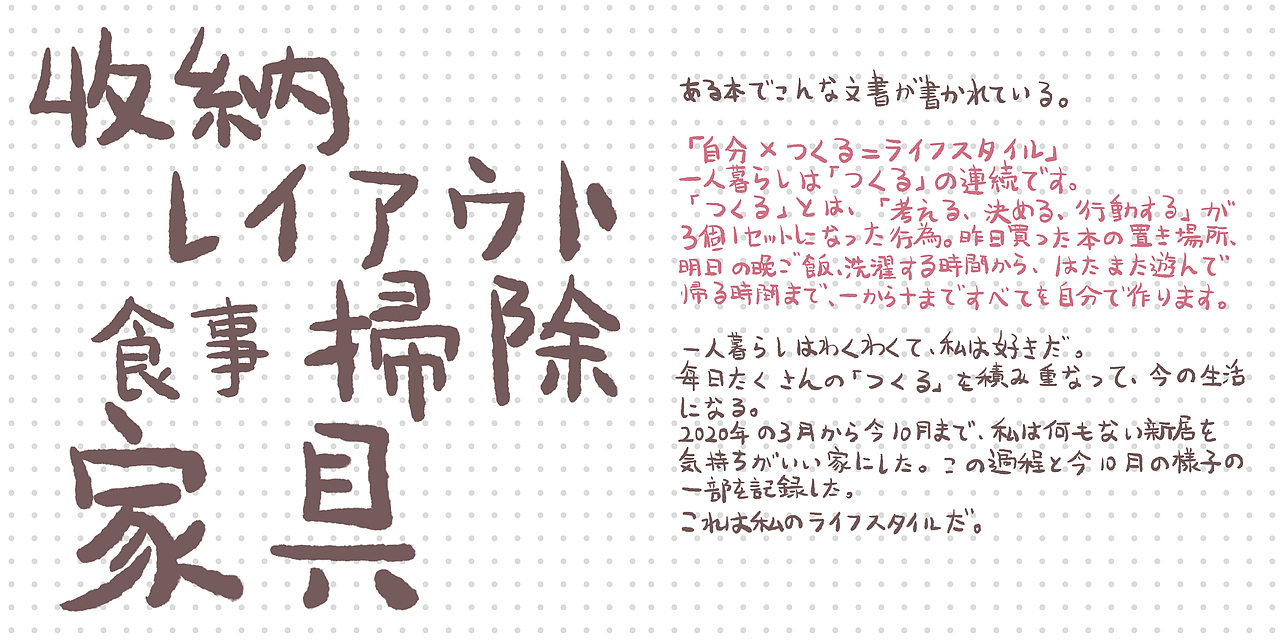 収納
レイアウト
食事 掃除
家具
ある本でこんな文書が書かれている。
「自分×つくる=ライフスタイル」
一人暮らしは「つくる」の連続です。
「つくる」とは、「考える、決める、行動する」が
3個1セットになった行為。昨日買った本の置き場所、
明日の晩ご飯、洗濯する時間から、はたまた遊んで
帰る時間まで、一から十まですべてを自分で作ります。
一人暮らしはわくわくて、私は好きだ。
毎日たくさんの「つくる」を積み重なって、今の生活
になる。
2020年の3月から今10月まで、私は何もない新居を
気持ちがいい家にした。この過程と今10月の様子の
一部を記録した。
これは私のライフスタイルだ。